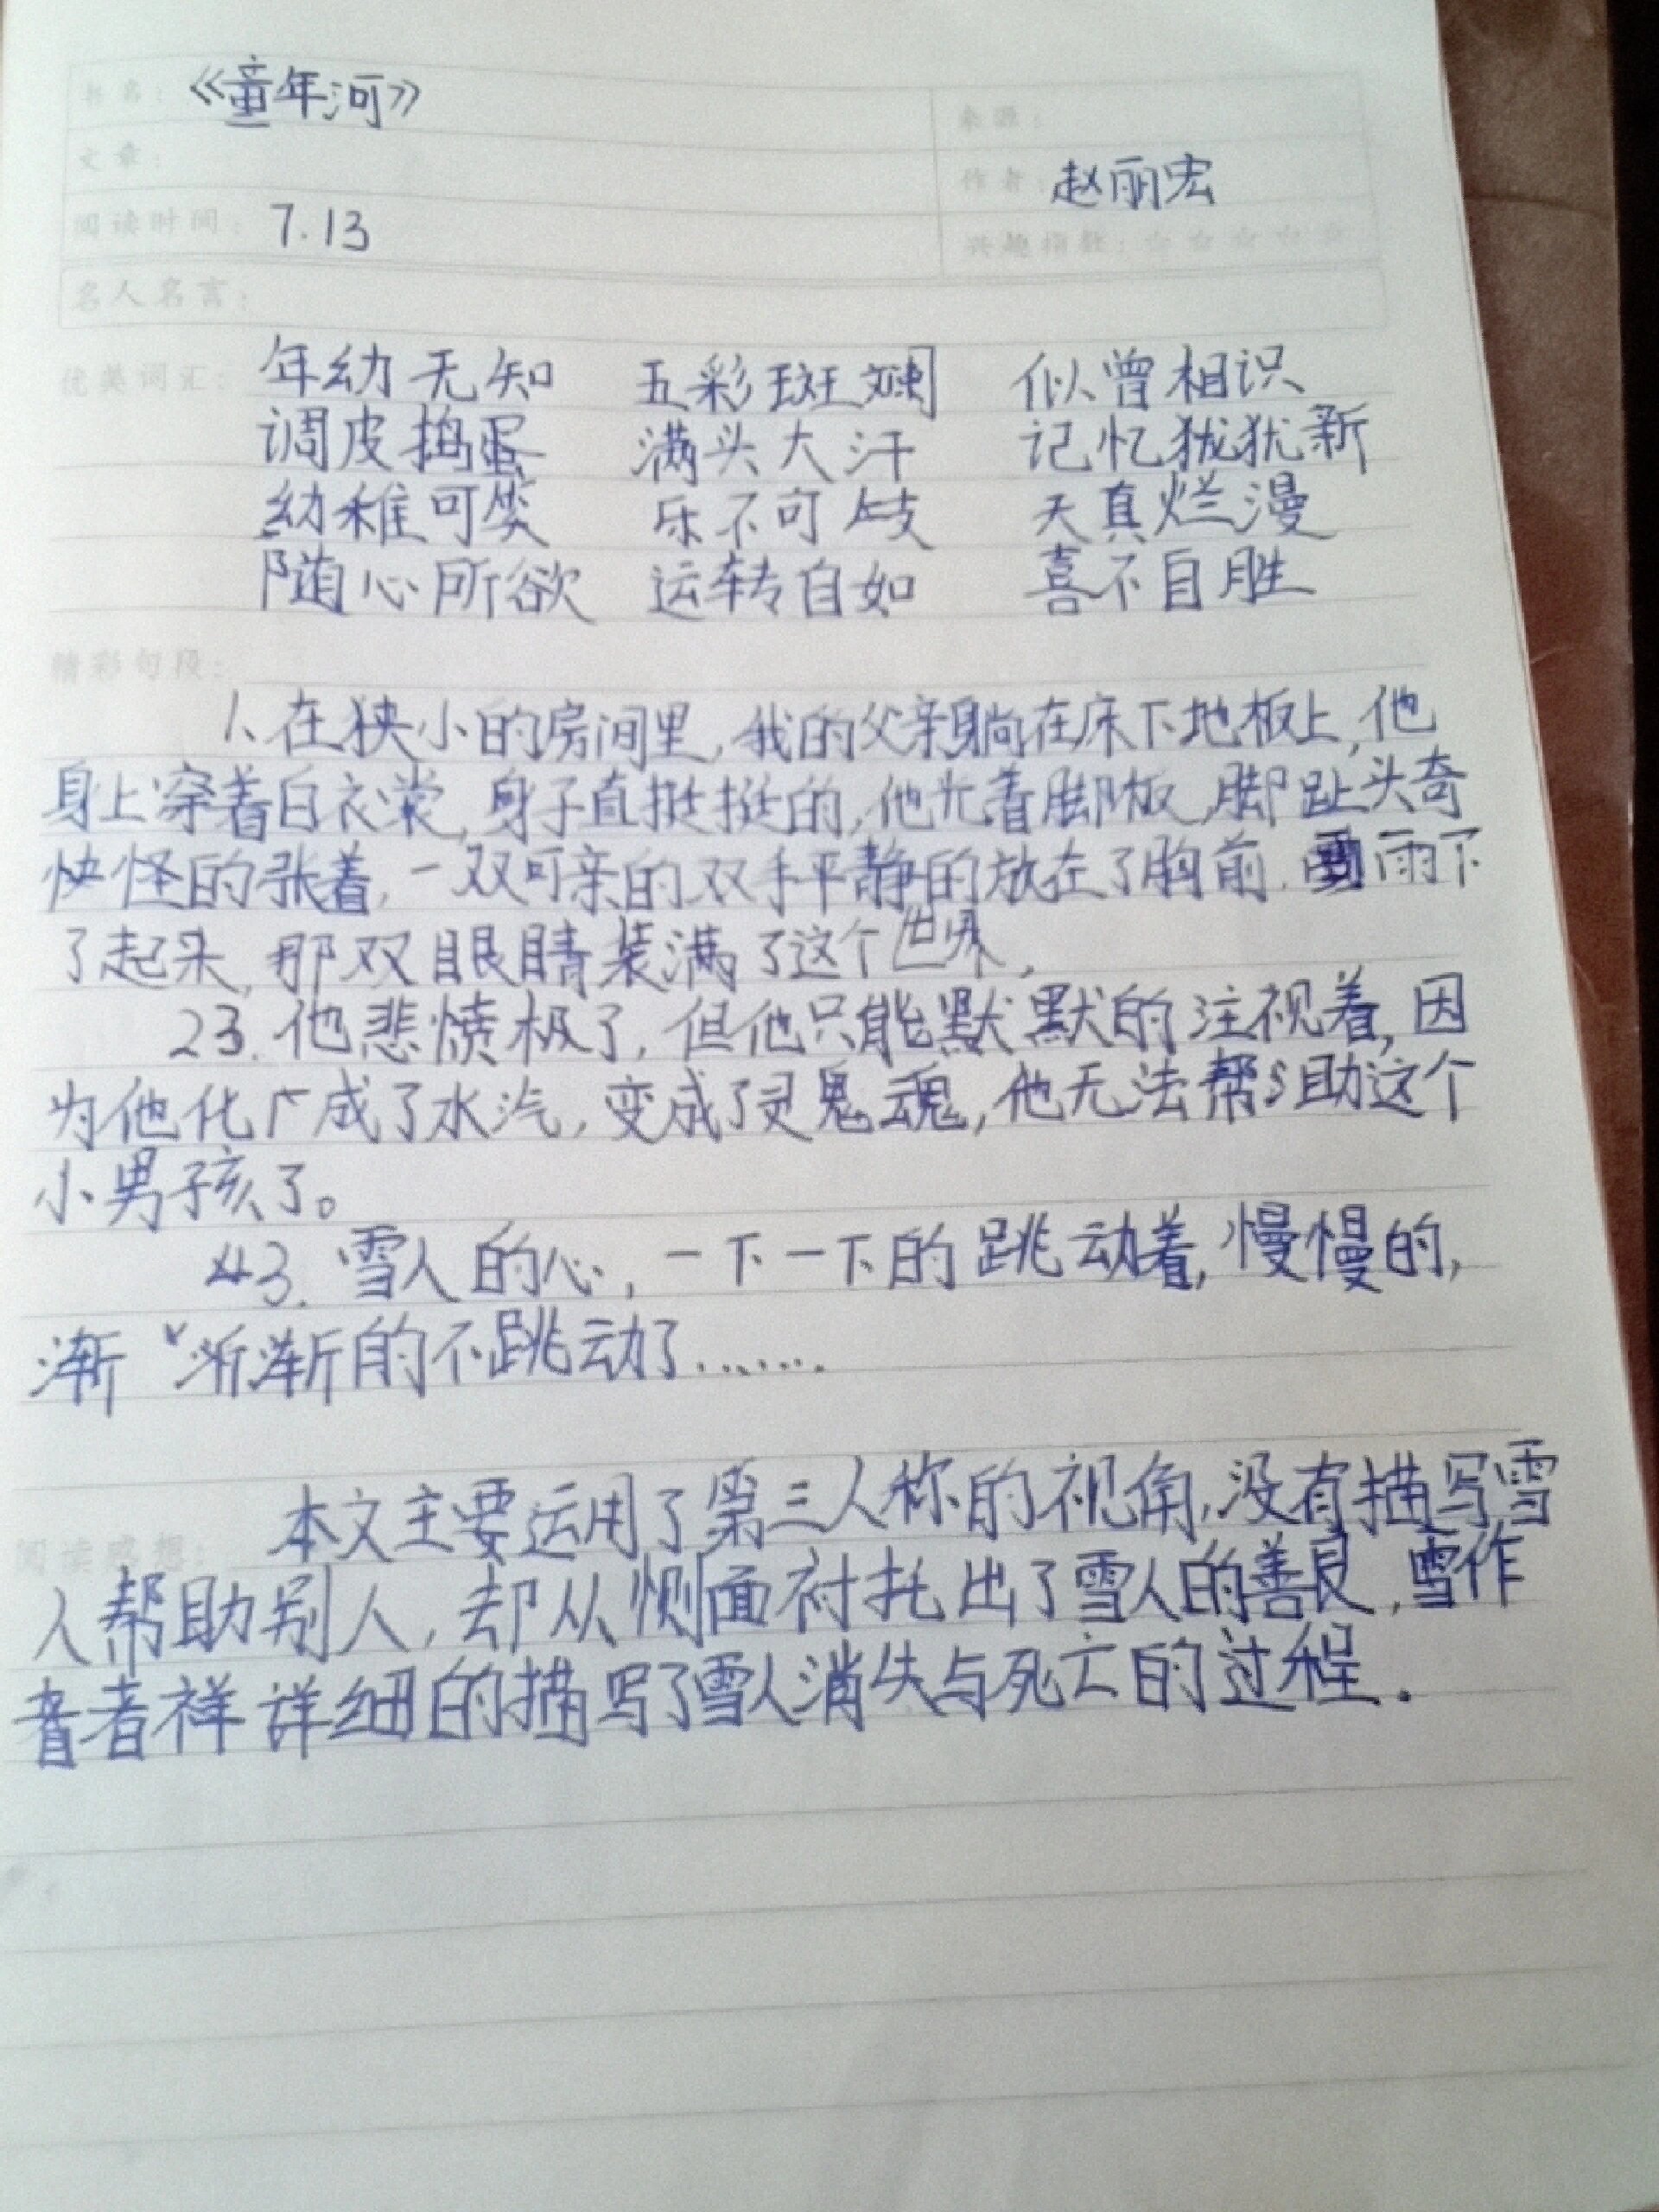 书名：《童年河》
来源：
文章：
作者：赵丽宏
阅读时间：7.13
兴趣指数：☆☆☆☆☆
名人名言：
优美词汇：年幼无知 五彩斑斓 似曾相识
调皮捣蛋 满头大汗 记忆犹犹新
幼稚可笑 乐不可支 天真烂漫
随心所欲 运转自如 喜不自胜
精彩句段：
1、在狭小的房间里，我的父亲躺在床下地板上，他
身上穿着白衣裳，身子直挺挺的，他光着脚板，脚趾头奇
怪的张着，一双可亲的双手平静的放在了胸前，雨下
了起来，那双眼睛装满了这个世界，
23.他悲愤极了，但他只能默默的注视着，因
为他化成了水汽，变成了灵魂，他无法帮助这个
小男孩了。
43.雪人的心，一下一下的跳动着，慢慢的，
渐渐渐的不跳动了……
本文主要运用了第三人称的视角，没有描写雪
阅读感想：
人帮助别人，却从侧面衬托出了雪人的善良，作
者祥详细的描写了雪人消失与死亡的过程．